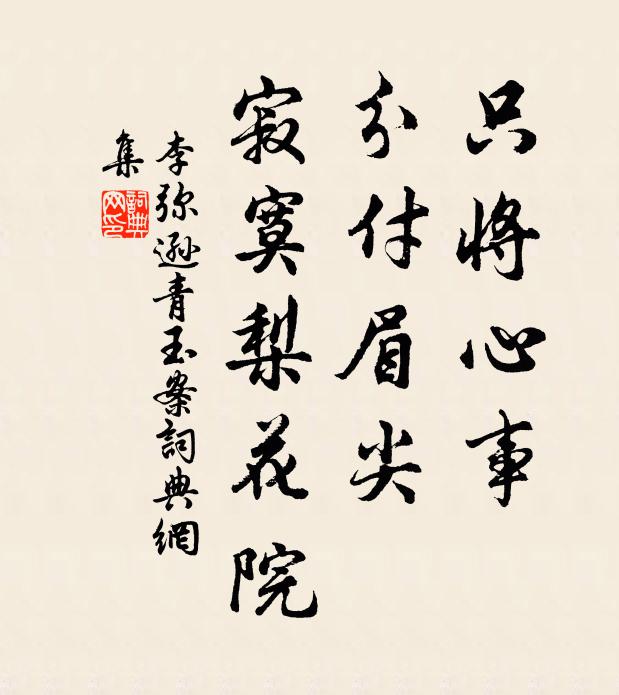 只将心事
分付眉尖
寂寞梨花院
李弥逊青玉案詞典網
集
詞典
网印